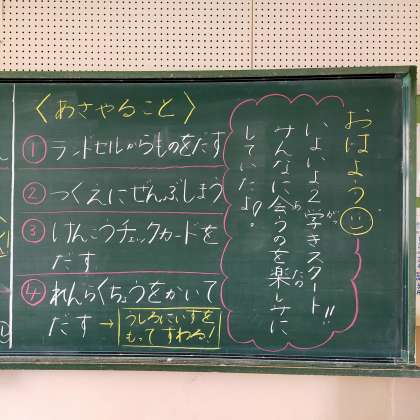 〈あさやること〉
①ランドセルからものをだす
②つくえにぜんぶしまう
③けんこうチェックカードを
だす
④れんらくちょうをかいて
だす→うしろにいすを
もってすわる!
おはよう
いよいよ2学きスタート!!
みんなに会うのを楽しみに
していたよ!。